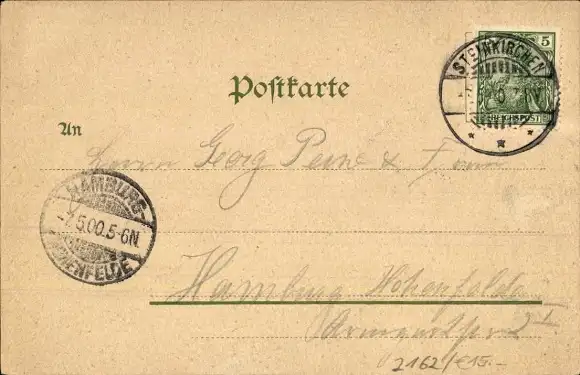 5
STEINKIRCHEN
REICHSPOST
Postkarte
An
Herrn Georg Peine &
HAMBURG-
5.00.5-6N.
HOHENFELDE
Hamburg Hohenfelde
2162/€15.-